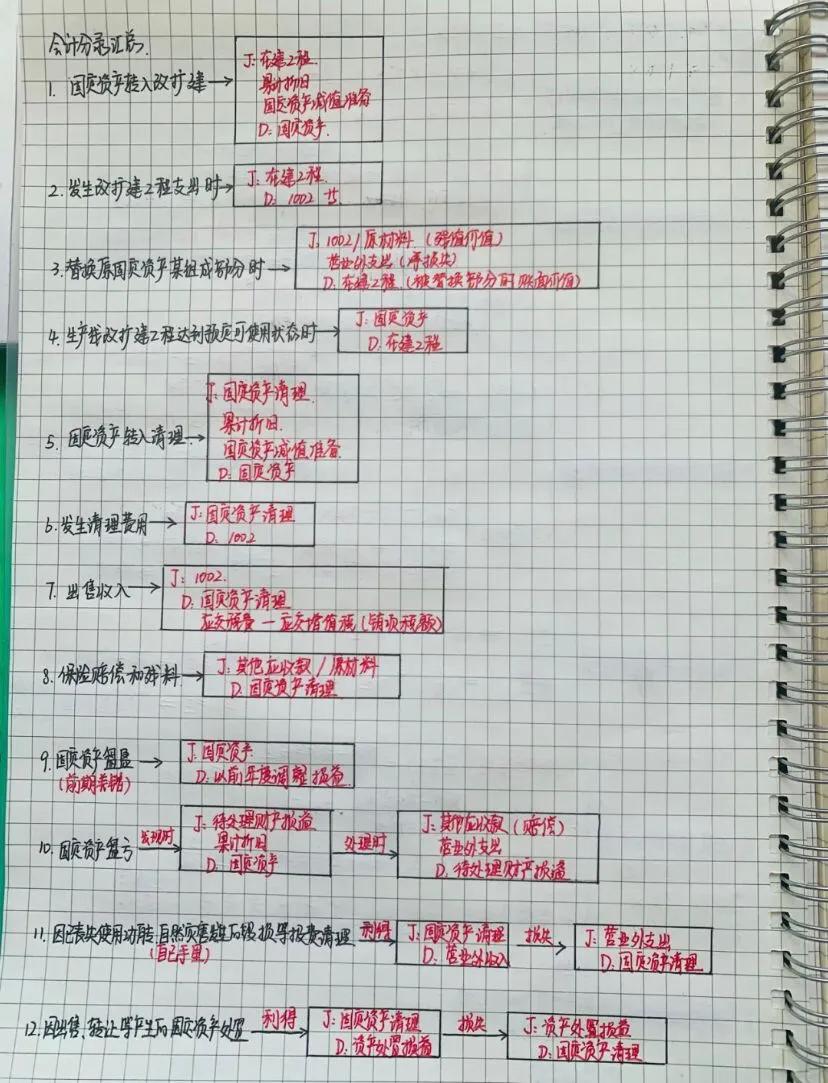 会计分录汇总.
1. 固定资产转入改扩建→
J: 在建工程.
累计折旧
固定资产减值准备
D: 固定资产.
2. 发生改扩建工程支出时→
J: 在建工程.
D: 1002 等
3. 替换原固定资产某组成部分时→
J: 1002/原材料 (残值价值)
营业外支出 (净损失)
D: 在建工程 (被替换部分的账面价值)
4. 生产线改扩建工程达到预定可使用状态时→
J: 固定资产
D: 在建工程
5. 固定资产转入清理→
J: 固定资产清理.
累计折旧.
固定资产减值准备.
D: 固定资产
6. 发生清理费用→
J: 固定资产清理
D: 1002
7. 出售收入→
J: 1002.
D: 固定资产清理
应交税费—应交增值税(销项税额)
8. 保险赔偿和残料→
J: 其他应收款/原材料
D: 固定资产清理
9. 固定资产盘盈→
(前期差错)
J: 固定资产
D: 以前年度调整损益
10. 固定资产盘亏
发现时
J: 待处理财产损益
累计折旧
D: 固定资产
处理时
J: 其他应收款 (赔偿)
营业外支出
D: 待处理财产损溢
11. 因已丧失使用功能、自然灾害发生的毁损等报废清理
(自己手里)
利得
J: 固定资产清理
D: 营业外收入
损失
J: 营业外支出
D: 固定资产清理
12. 因出售、转让等产生的固定资产处置
利得
J: 固定资产清理
D: 资产处置损益
损失
J: 资产处置损益
D: 固定资产清理